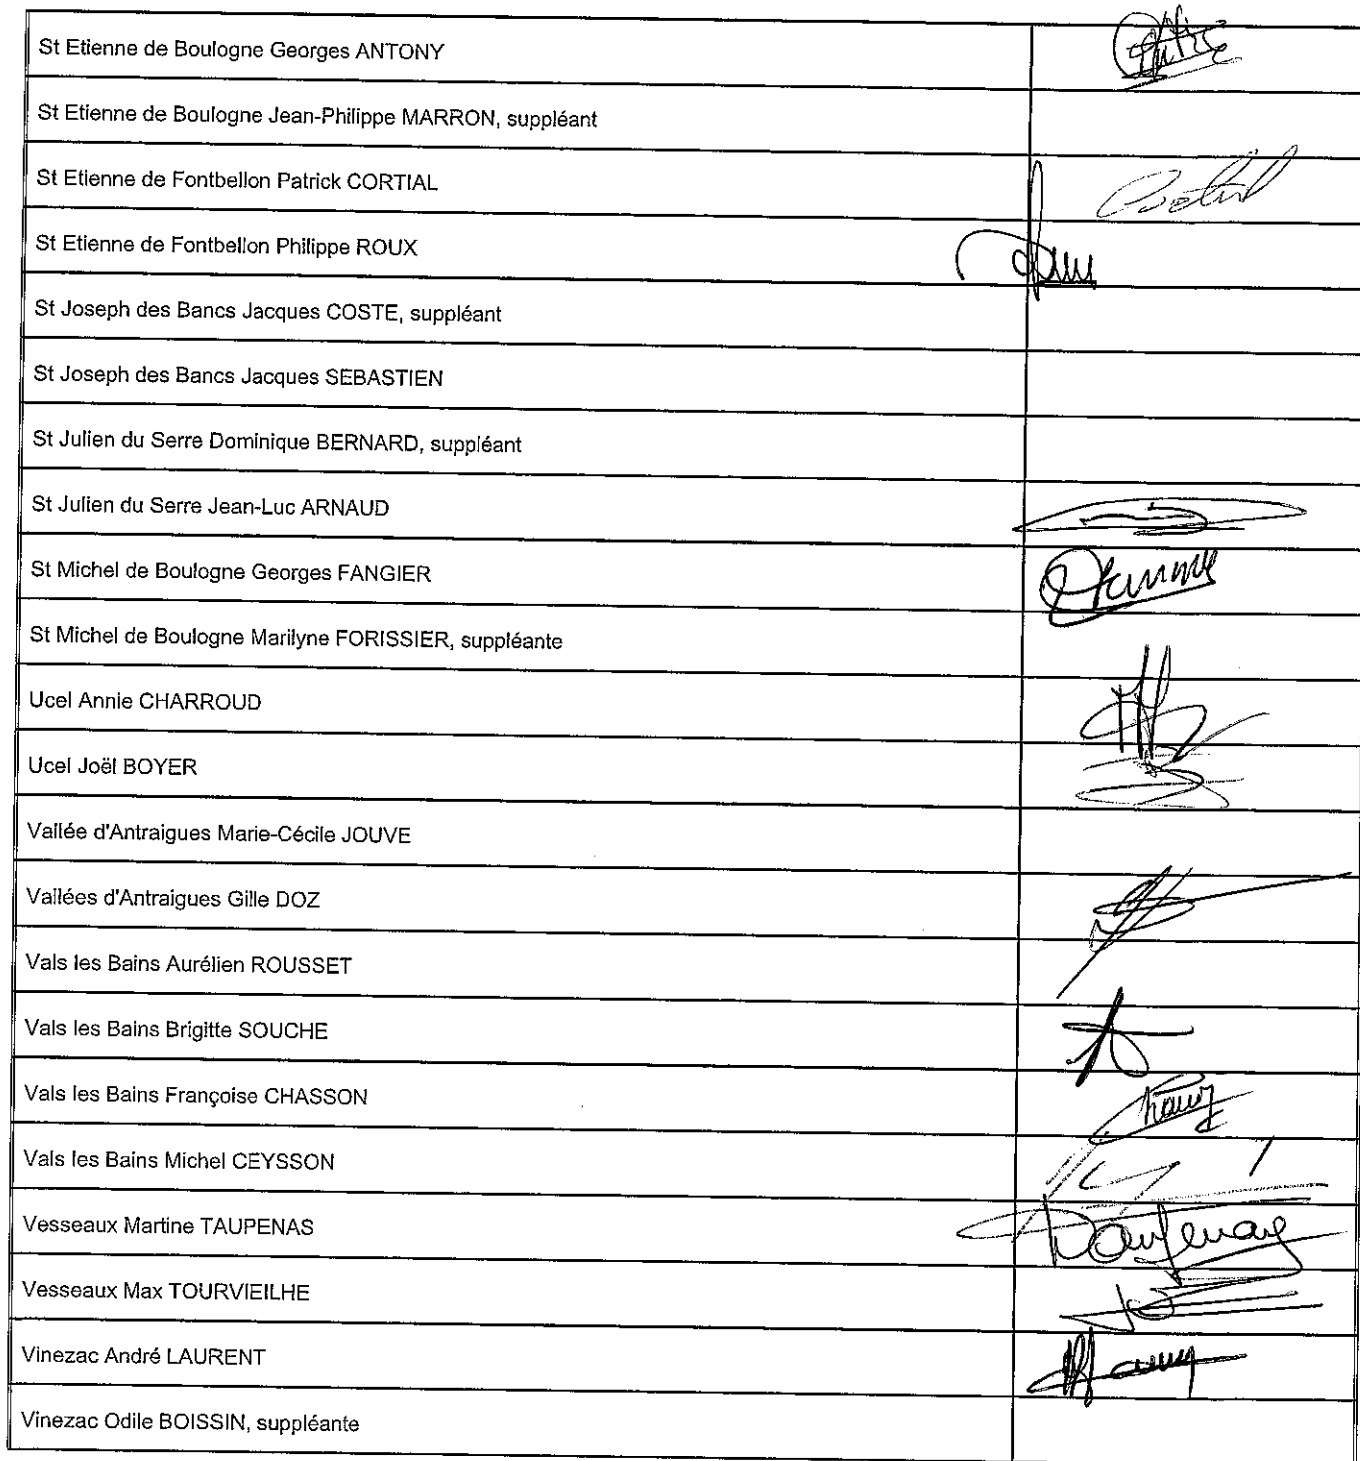 St Etienne de Boulogne Georges ANTONY
St Etienne de Boulogne Jean-Philippe MARRON, suppléant
St Etienne de Fontbellon Patrick CORTIAL
St Etienne de Fontbellon Philippe ROUX
St Joseph des Bancs Jacques COSTE, suppléant
St Joseph des Bancs Jacques SEBASTIEN
St Julien du Serre Dominique BERNARD, suppléant
St Julien du Serre Jean-Luc ARNAUD
St Michel de Boulogne Georges FANGIER
St Michel de Boulogne Marilyne FORISSIER, suppléante
Ucel Annie CHARROUD
Ucel Joël BOYER
Vallée d'Antraigues Marie-Cécile JOUVE
Vallées d'Antraigues Gille DOZ
Vals les Bains Aurélien ROUSSET
Vals les Bains Brigitte SOUCHE
Vals les Bains Françoise CHASSON
Vals les Bains Michel CEYSSON
Vesseaux Martine TAUPENAS
Vesseaux Max TOURVIEILHE
Vinezac André LAURENT
Vinezac Odile BOISSIN, suppléante